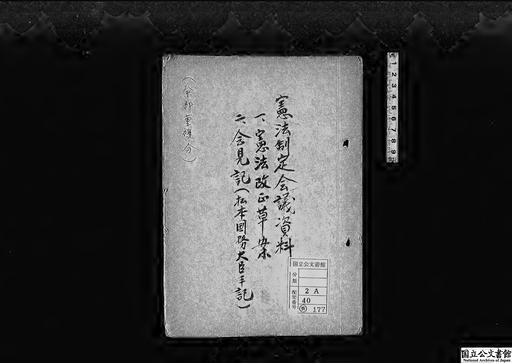 憲法制定会議資料
一、憲法改正草案
二、会見記(松本国務大臣手記)
国立公文書館
分類
配架番号
2 A
40
177
1 2 3 4 5 6 7 8 9
国立公文書館
National Archives of Japan